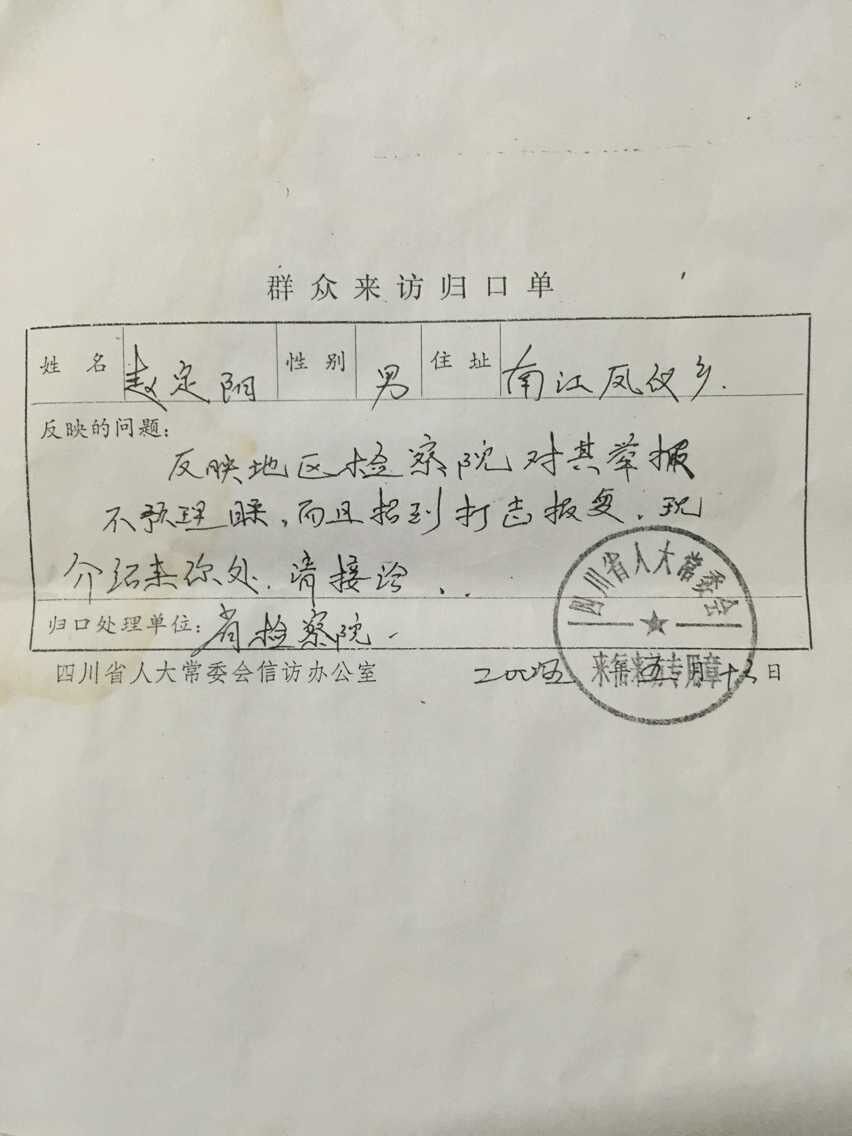 群众来访归口单
姓名 赵定阳 性别 男 住址 南江凤仪乡.
反映的问题:
反映地区检察院对其举报
不予理睬,而且招到打击报复.现
介绍来你处.请接洽.
归口处理单位: 省检察院
四川省人大常委会信访办公室 五月十 日
四川省人大常委会
来信来访专用章